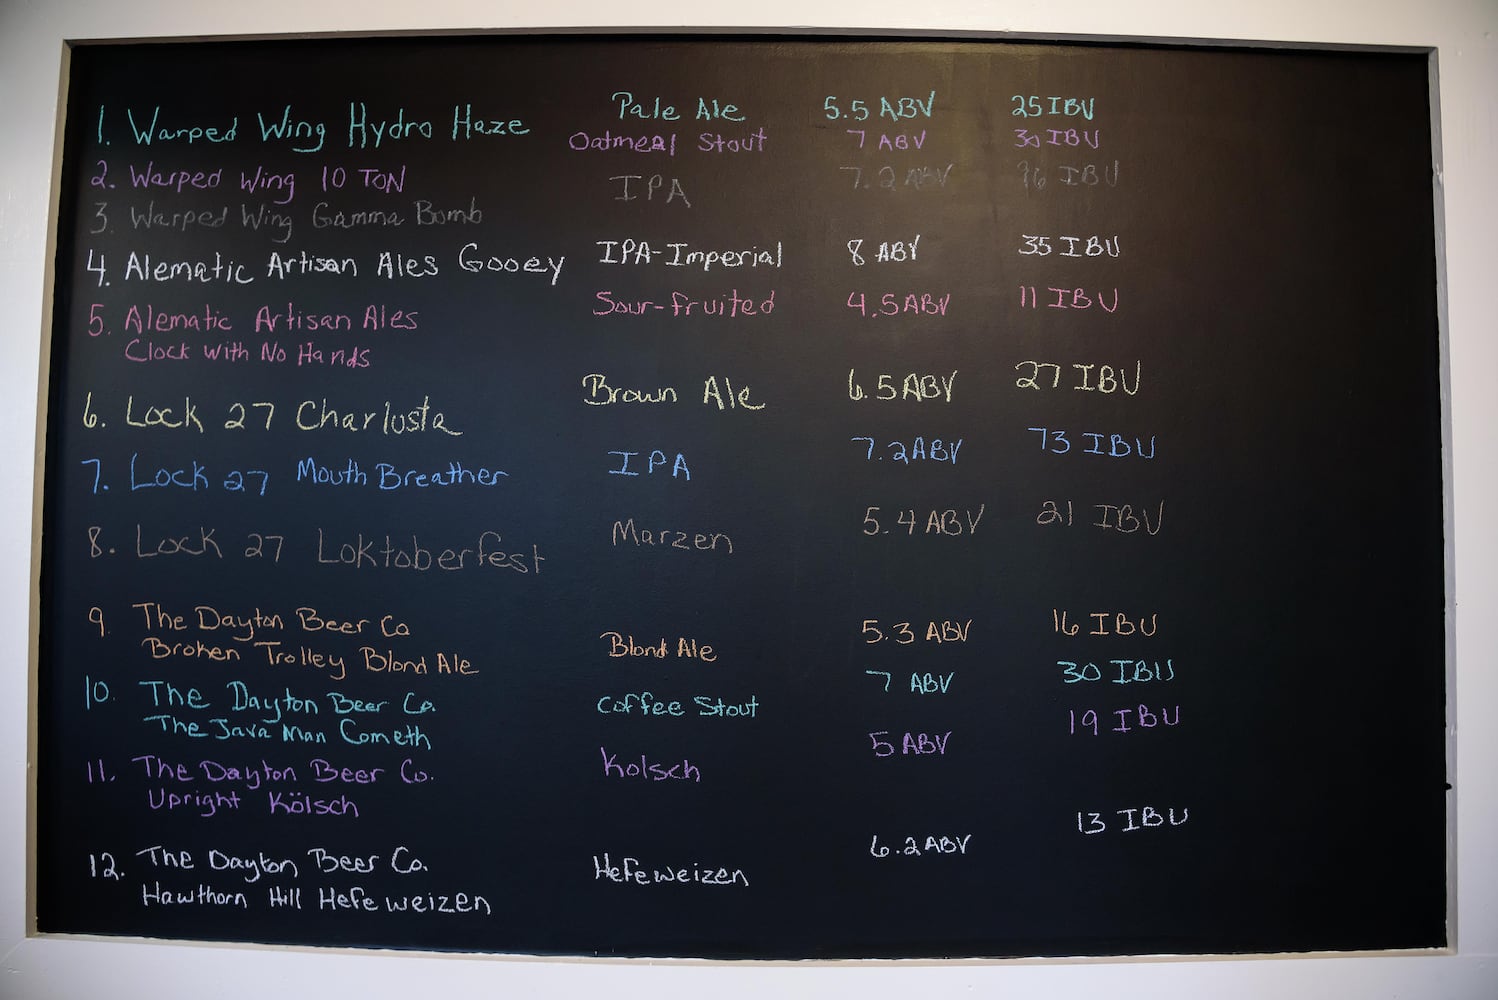 1. Warped Wing Hydro Haze Pale Ale 5.5 ABV 25 IBU
2. Warped Wing 10 TON Oatmeal Stout 7 ABV 30 IBU
3. Warped Wing Gamma Bomb IPA 7.2 ABV 96 IBU
4. Alematic Artisan Ales Gooey IPA-Imperial 8 ABV 35 IBU
5. Alematic Artisan Ales Sour-fruited 4.5 ABV 11 IBU
Clock with No Hands
6. Lock 27 Charlusta Brown Ale 6.5 ABV 27 IBU
7. Lock 27 Mouth Breather IPA 7.2 ABV 73 IBU
8. Lock 27 Loktoberfest Marzen 5.4 ABV 21 IBU
9. The Dayton Beer Co
Broken Trolley Blond Ale Blond Ale 5.3 ABV 16 IBU
10. The Dayton Beer Co. Coffee Stout 7 ABV 30 IBU
The Java Man Cometh
11. The Dayton Beer Co. Kolsch 5 ABV 19 IBU
Upright Kölsch
12. The Dayton Beer Co. Hefeweizen 6.2 ABV 13 IBU
Hawthorn Hill Hefeweizen